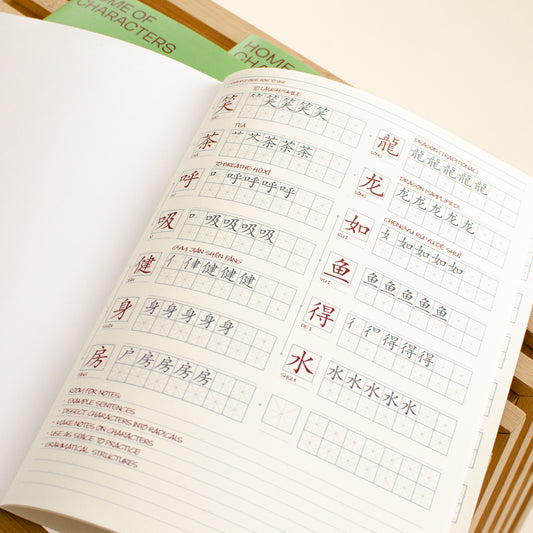 HOME OF
CHARACTERS
HOME OF
TO LAUGH/SMILE
笑 笑 笑 笑 笑
TEA
茶 茶 茶 茶 茶
TO BREATHE HŪXĪ
呼 呼 呼 呼 呼
吸 吸 吸 吸 吸
GYM JIÀN SHĒN FÁNG
健 亻 健 健 健
身 身 身 身 身 身
房 户 房 房 房 房
ROOM FOR NOTES
- EXAMPLE SENTENCES
- DISSECT CHARACTERS INTO RADICALS
- MAKE NOTES ON CHARACTERS
- USE AS SPACE TO PRACTICE
- GRAMMATICAL STRUCTURES
DRAGON (TRADITIONAL)
龍 龍 龍 龍 龍 龍
LÓNG
DRAGON (SIMPLIFIED)
龙 龙 龙 龙 龙 龙
LÓNG
CHENGYU RÚ YÚ DÉ SHUǏ
如 女 如 如 如 如
RÚ
鱼 鱼 鱼 鱼 鱼 鱼
YÚ
得 彳 得 得 得
DÉ
水 水 水 水 水 水
SHUǏ